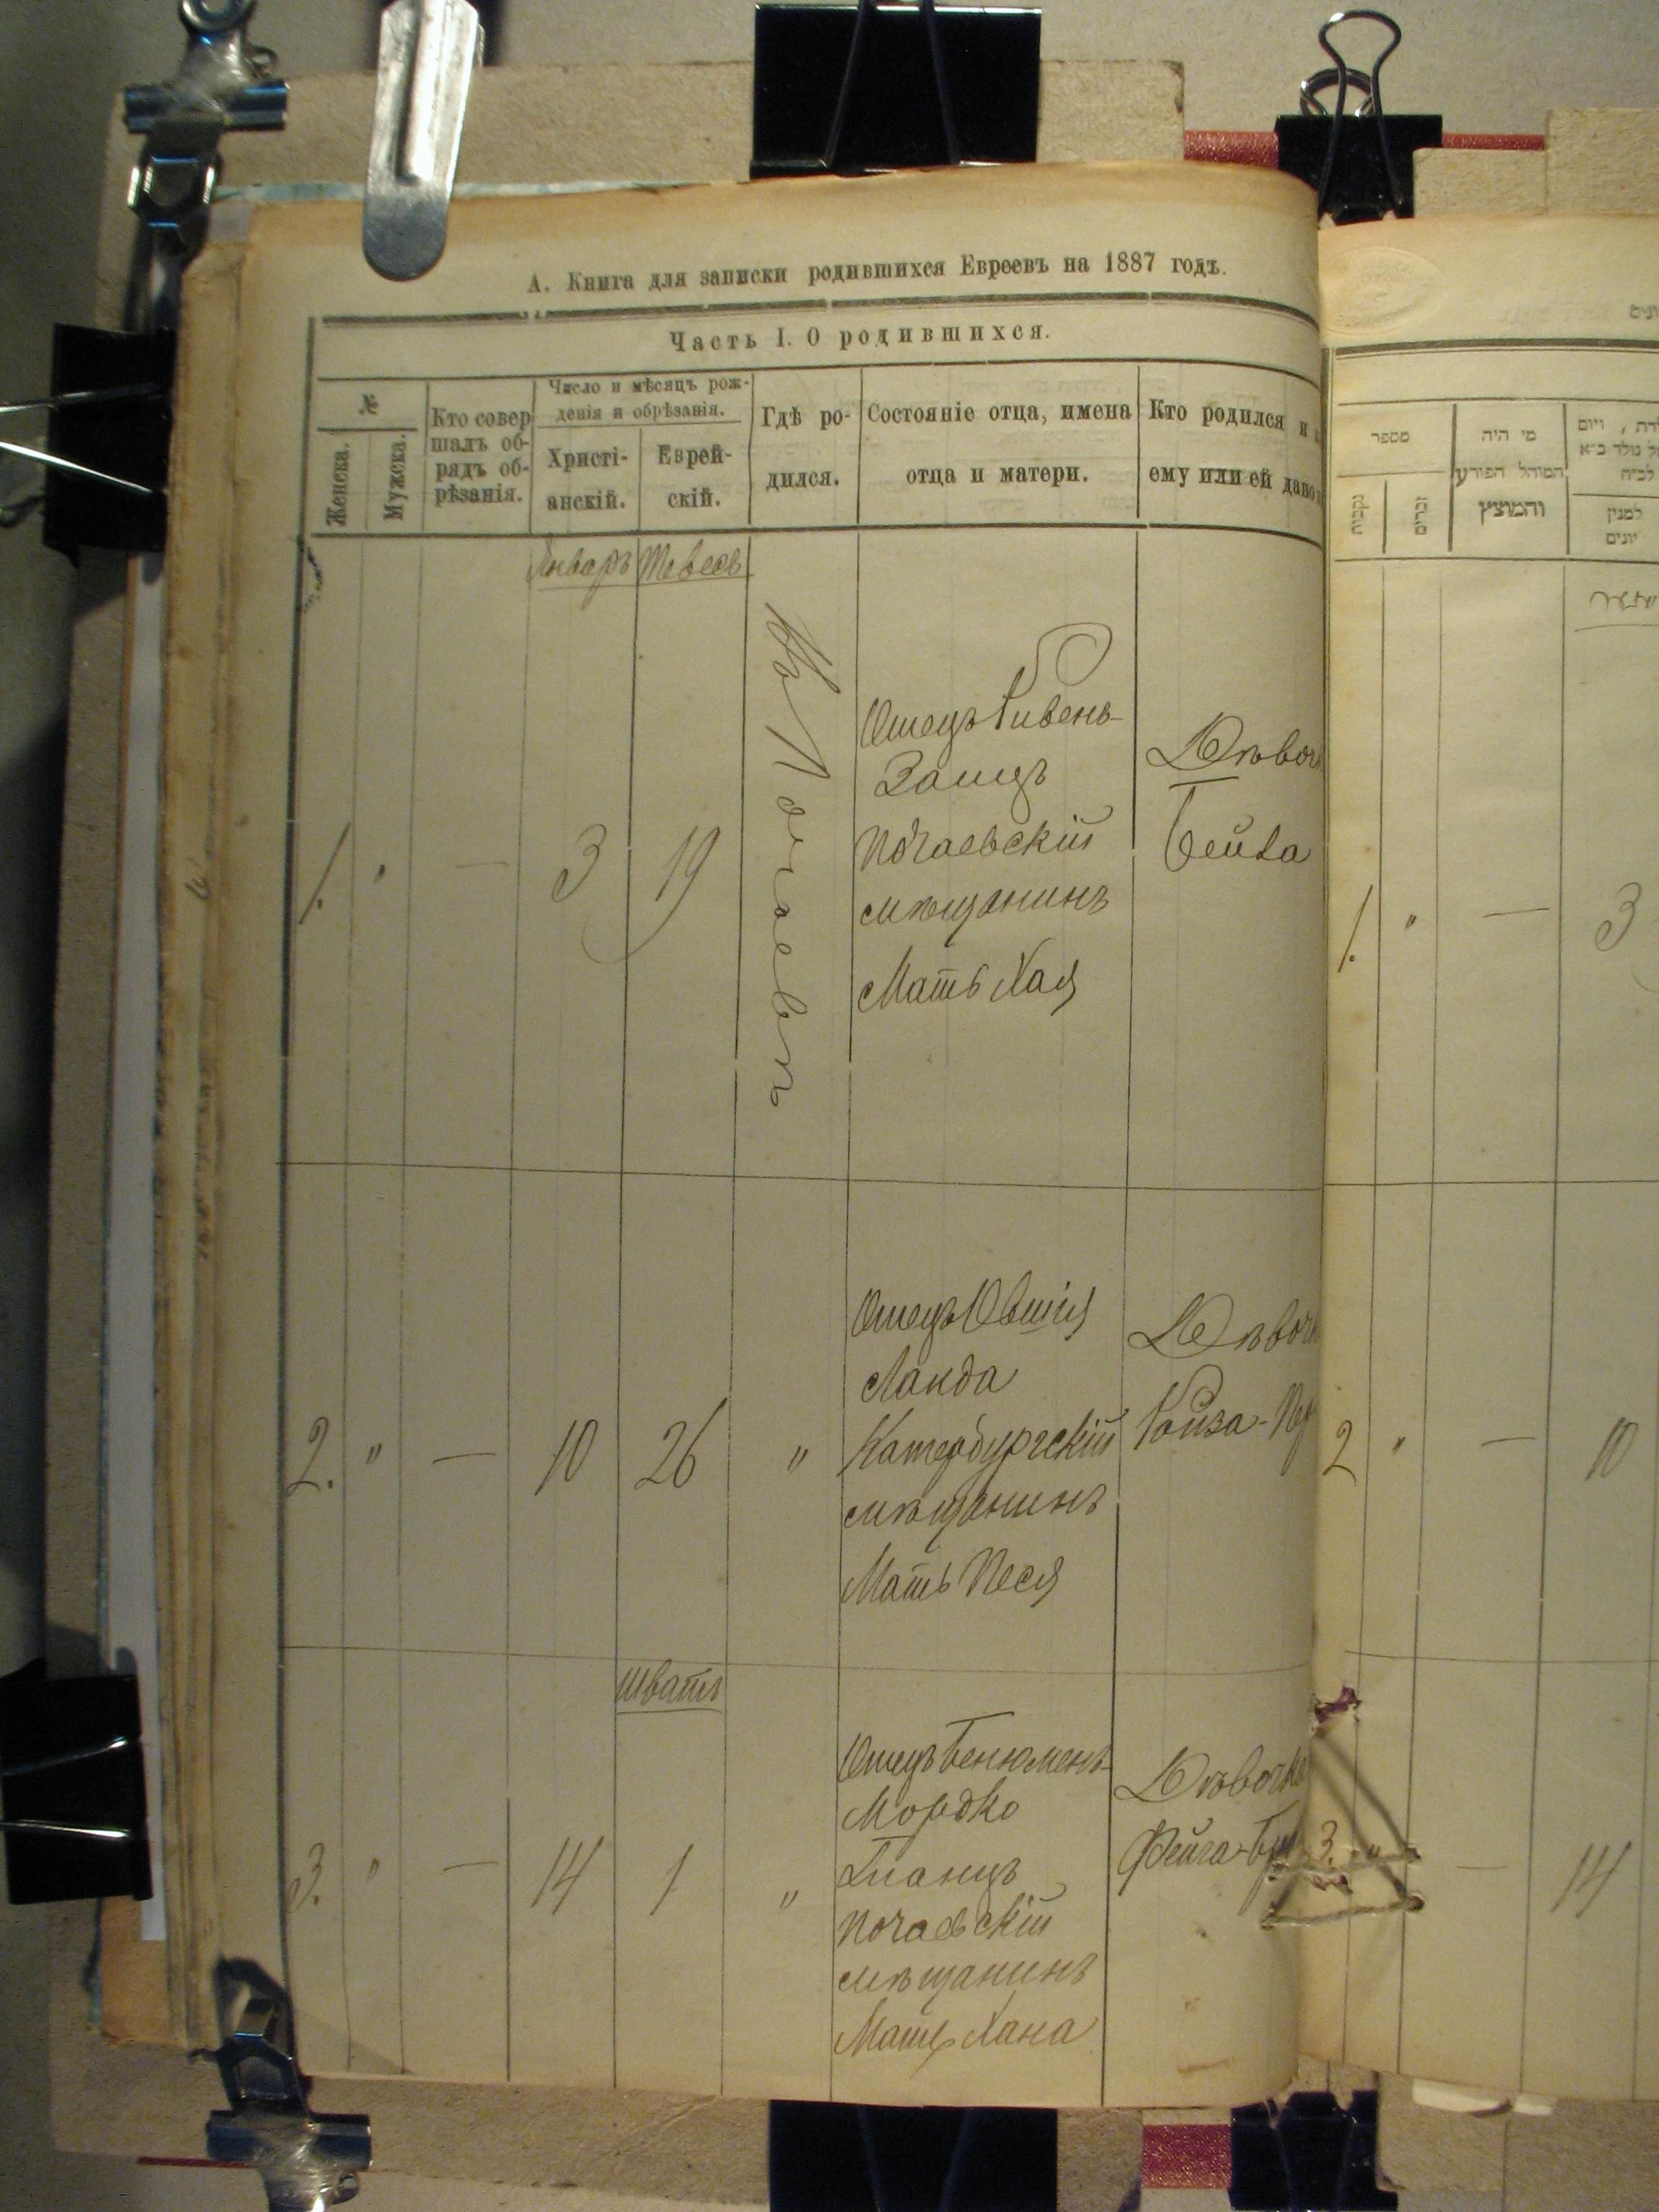 А. Книга для записки родившихся Евреевъ на 1887 годъ.
Часть I. О родившихся.
№
Женска.
Мужска.
Кто совер
шалъ об-
рядъ об-
рѣзанія.
Число и мѣсяцъ рож-
денія и обрѣзанія.
Христі-
анскій.
Еврей-
скій.
Гдѣ ро-
дился.
Состояніе отца, имена
отца и матери.
Кто родился и
ему или ей дано
Январь Тевесъ
1. " — 3 19
Въ Почаевѣ
Отецъ Ривень-
Заицъ
Почаевскій
мѣщанинъ
Мать Хая
Дѣвочк
Бейла
2. " — 10 26 "
Отецъ Овшія
Ланда
Катербургскій
мѣщанинъ
Мать Песя
Дѣвоч
Ройза-
Шватъ
3. " — 14 1 "
Отецъ Бенюмень-
Мордко
Почаевскій
мѣщанинъ
Мать Хана
Дѣвочка
Фейга-
מספר
נקבות
זכרים
מי היה
המוהל הפורע
והמוצץ
ויום
למנין
יונים
1. " — 3
2 " — 10
3. " — 14